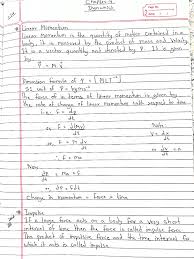 Chapter-4
Dynamics
Linear Momentum
Linear Momentum is the quantity of motion contained in a
body. It is measured by the product of mass and velocity.
It is a vector quantity and denoted by P. It is given
by:
P = M v
Dimension formula of P = [MLT⁻¹]
SI unit of P = kgms⁻¹
The force in a terms of linear momentum is given by
the rate of change of linear momentum with respect to time
i.e. F = dp/dt
or, F = d(mv)/dt
or, F = m dv/dt
∴ F = ma
Note:
v = dx/dt
a = dv/dt
Now,
F = dp/dt
or, dp = Fdt
Change in momentum = Force × time
Impulse
If a large force acts on a body for a very short
interval of time then the force is called impulse force.
The product of impulse force and the time interval for
which it acts is called impulse